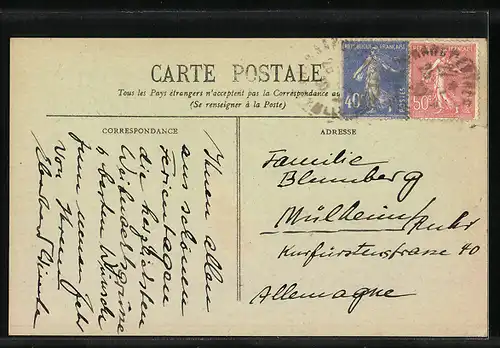 CARTE POSTALE
Tous les Pays étrangers n'acceptent pas la Correspondance au
(Se renseigner à la Poste)
REPUBLIQUE FRANÇAISE
40c
POSTES
50c
CORRESPONDANCE
ADRESSE
Ihnen allen
aus schönen
Ferientagen
die herzlichsten
Weihnachtsgrüsse
u. besten Wünsche
zum neuen Jahr
von Ihrem
Familie
Blumberg
Mülheim/Ruhr
Kurfürstenstrasse 40
Allemagne